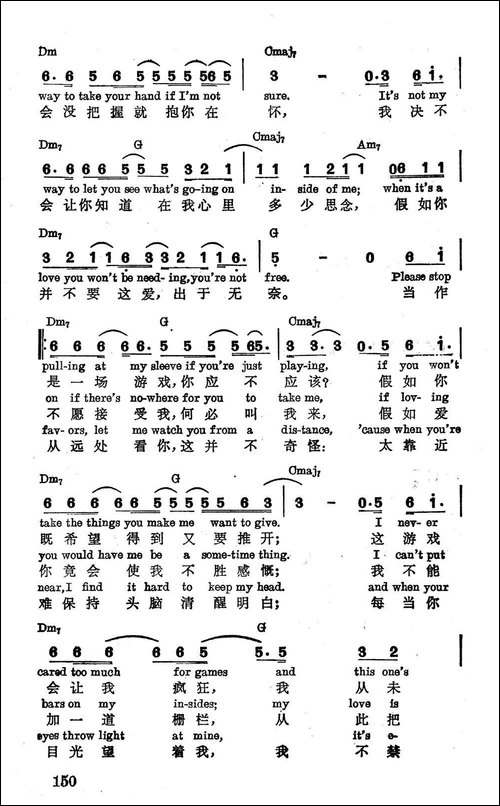 Dm Cmaj7
6. 6 5 6 5 5 5 5 5 6 5 | 3 - 0.3 6 i. |
way to take your hand if I'm not sure. It's not my
会没把握就抱你在 怀, 我决不
Dm7 G Cmaj7 Am7
6. 6 6 6 5 5 5 3 2 1 | 1 1 1 2 1 1 06 1 1 |
way to let you see what's go-ing on in- side of me; when it's a
会让你知道 在我心里 多少思念, 假如你
Dm7 G
3 2 1 1 6 3 3 3 2 1 1 6. | 5 - 0 6 1 |
love you won't be need- ing, you're not free. Please stop
并不要这爱,出于无 奈。 当作
Dm7 G Cmaj7
6 6 6 6 6. 5 5 5 5 65. | 3 3. 3 3 0.5 6 i. |
pull-ing at my sleeve if you're just play-ing, if you won't
是一场 游戏,你应不 应该? 假如你
on if there's no-where for you to take me, if lov- ing
不愿接 受我,何必叫 我来, 假如爱
fav- ors, let me watch you from a dis-tance, 'cause when you're
从远处 看你,这并不 奇怪: 太靠近
Dm7 G Cmaj7
6 6 6 6 6 5 5 5 5 6 3 | 3 - 0.5 6 i. |
take the things you make me want to give. I nev- er
既希望 得到又要推开; 这游戏
you would have me be a some-time thing. I can't put
你竟会 使我不胜感慨; 我不能
near, I find it hard to keep my head. and when your
难保持 头脑清醒明白; 每当你
Dm7 G
6 6 6 6 6 5 5. 5 3 2 |
cared too much for games and this one's
会让我 疯狂, 我 从未
bars on my in-sides; my love is
加一道 栅栏, 从 此把
eyes throw light at mine, it's e-
目光望 着我, 我 不禁
150